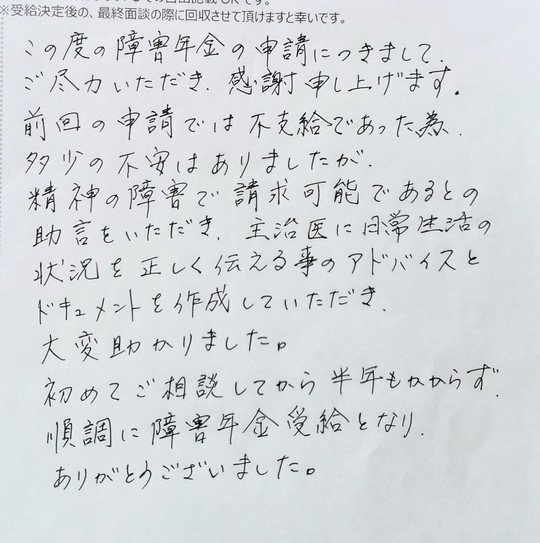 ※受給決定後の、最終面談の際に回収させて頂けますと幸いです。
この度の障害年金の申請につきまして、
ご尽力いただき、感謝申し上げます。
前回の申請では不支給であった為、
多少の不安はありましたが、
精神の障害で請求可能であるとの
助言をいただき、主治医に日常生活の
状況を正しく伝える事のアドバイスと
ドキュメントを作成していただき、
大変助かりました。
初めてご相談してから半年もかからず、
順調に障害年金受給となり、
ありがとうございました。